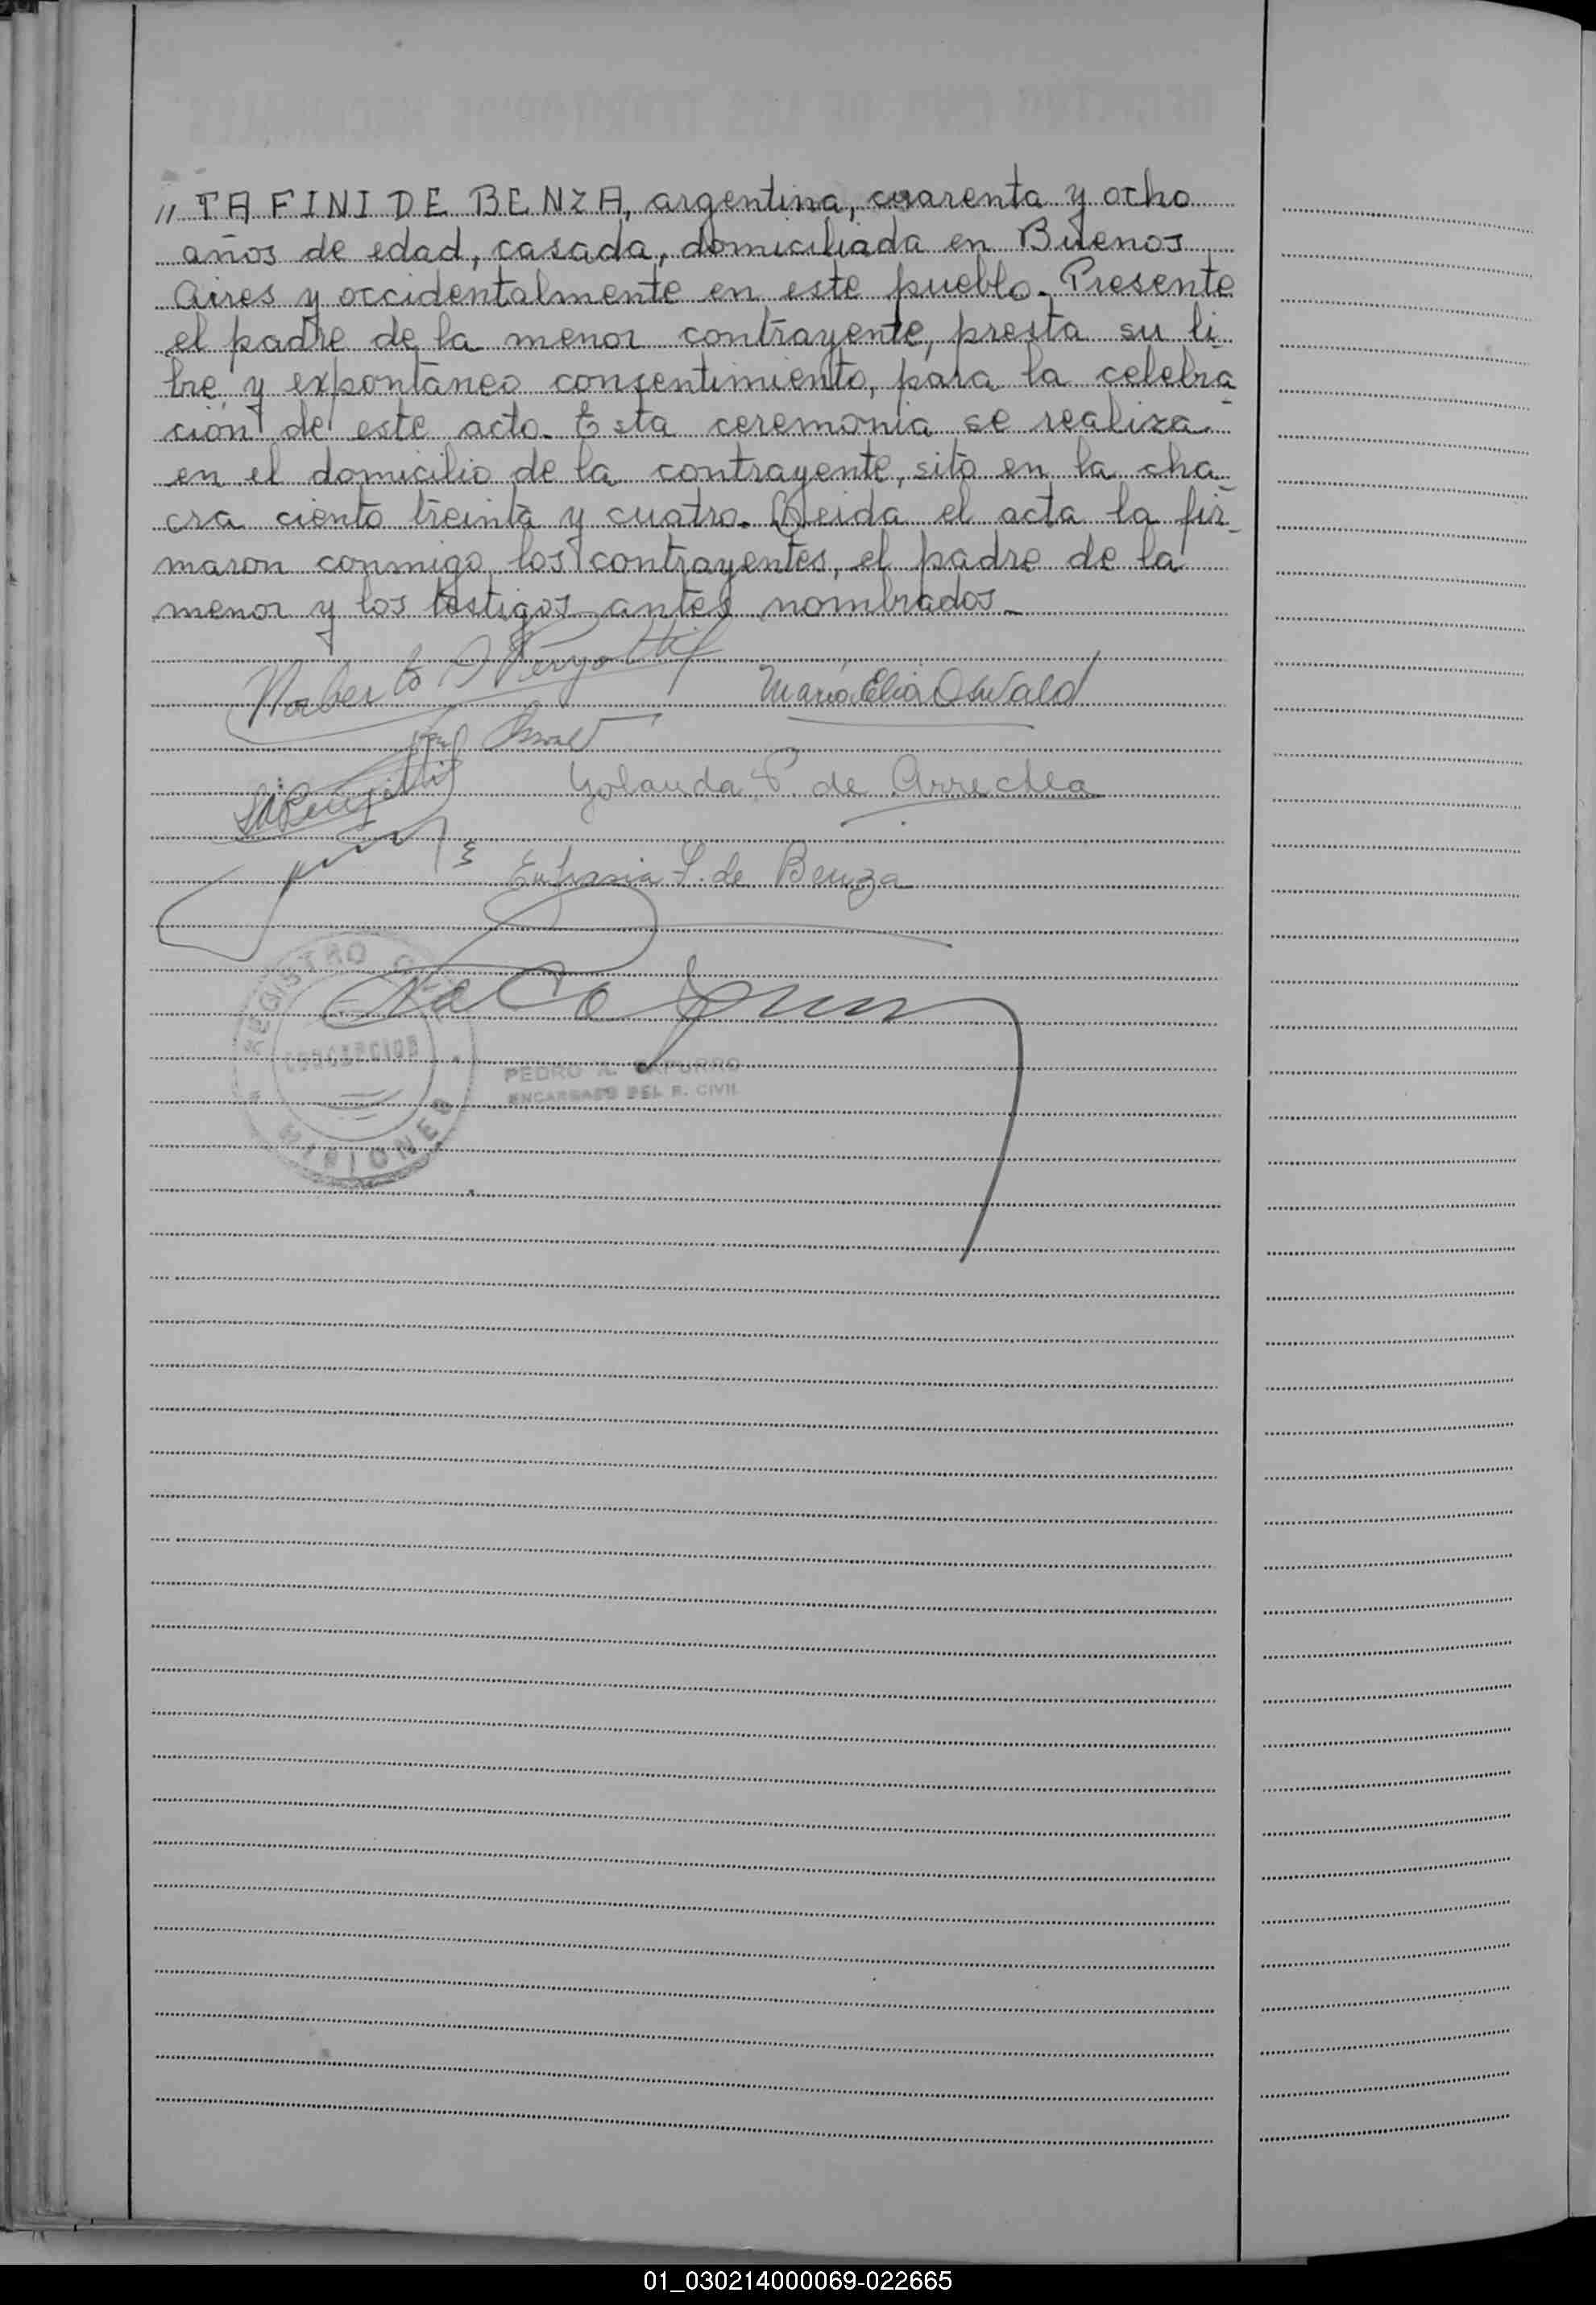 „TAFINI DE BENZA, argentina, cuarenta y ocho
años de edad, casada, domiciliada en Buenos
Aires y occidentalmente en este pueblo. Presente
el padre de la menor contrayente, presta su li
bre y expontáneo consentimiento, para la celebra
ción de este acto. Esta ceremonia se realiza
en el domicilio de la contrayente, sito en la cha
cra ciento treinta y cuatro. Leida el acta la fir-
maron conmigo los contrayentes, el padre de la
menor y los testigos antes nombrados.
Norberto
Maria Elia Oswald
Yolanda P. de Arrechea
de Benza
REGISTRO
CONCEPCION
MISIONES
PEDRO A. CAPURRO
ENCARGADO DEL R. CIVIL
01_030214000069-022665